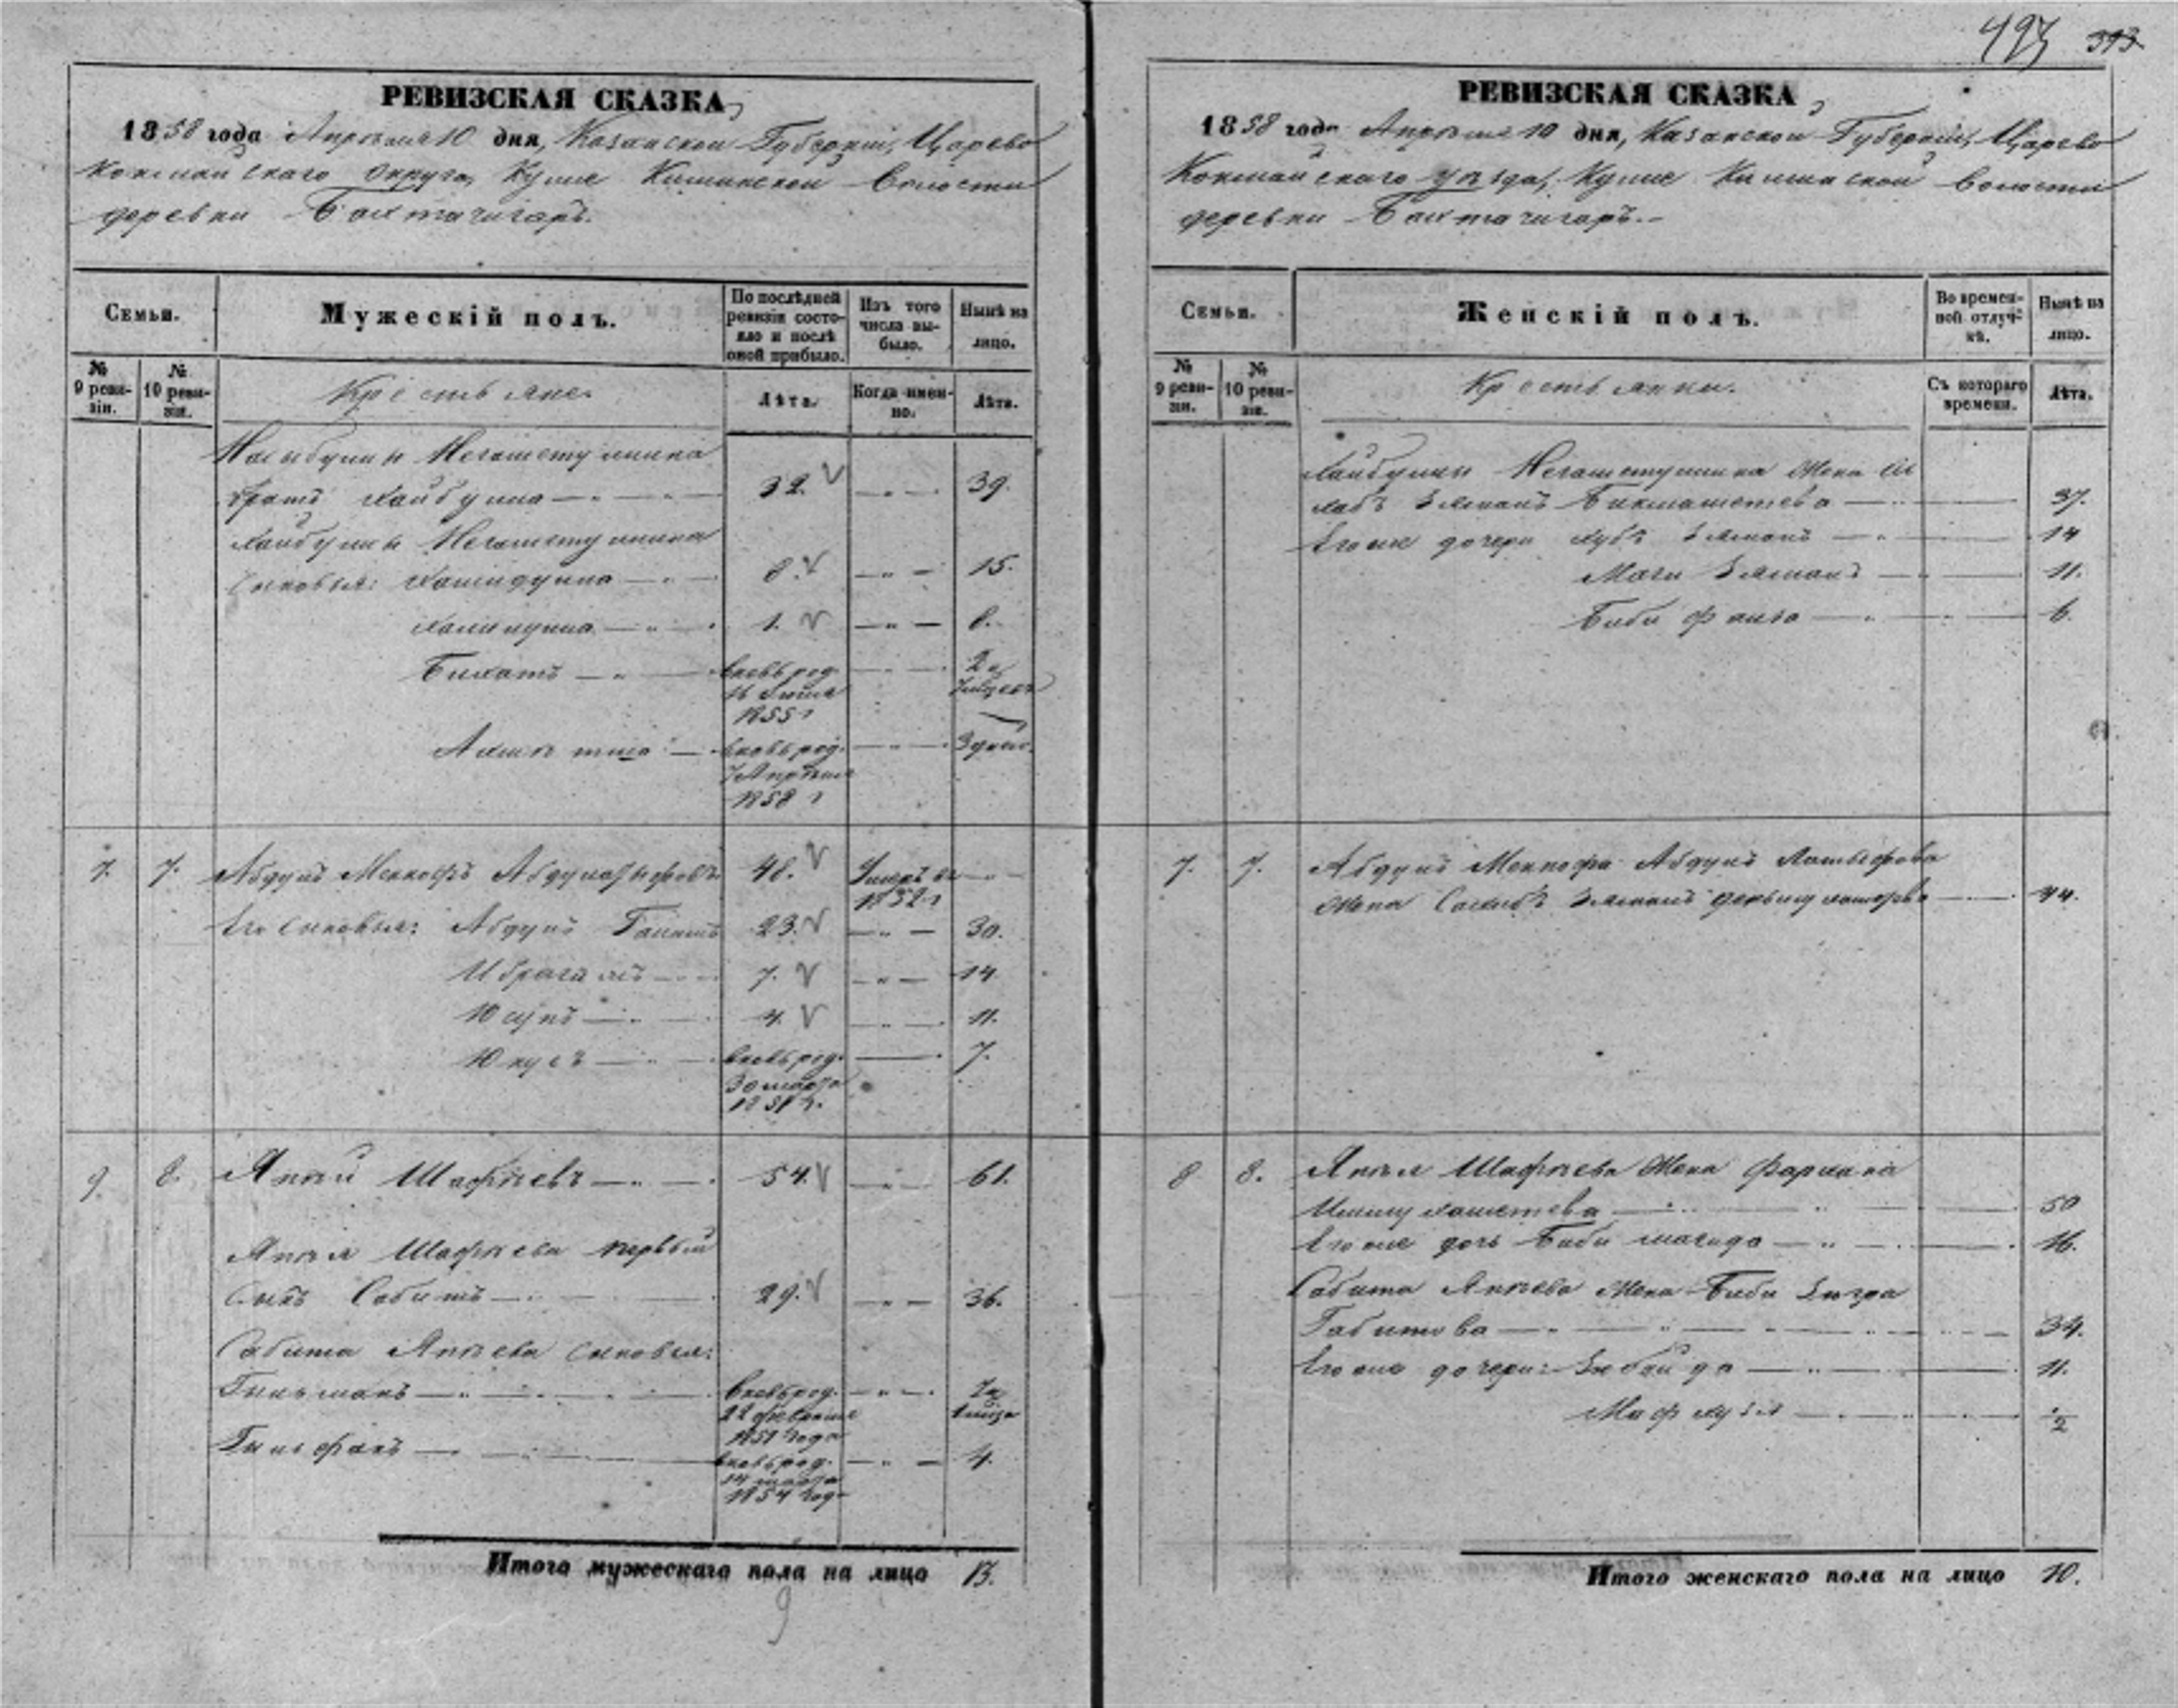 493 393
РЕВИЗСКАЯ СКАЗКА,
1858 года Апрѣля 10 дня, Казанской Губерніи, Царево
Кокшайскаго Округа, Кулле Киминской Волости
деревни Бахтачигаръ.
Семьи.
Мужескій полъ.
По послѣдней ревизіи состояло и послѣ оной прибыло.
Изъ того числа выбыло.
Нынѣ на лицо.
№ 9 ревизіи.
№ 10 ревизіи.
Крестьяне.
Лѣта.
Когда именно.
Лѣта.
Насибуллы Негаметуллина
братъ Хайбулла — 32. — 39.
Хайбуллы Негаметуллина
Сыновья: Хамидулла — 8. — 15.
Халиулла — 1. — 8.
Бикатъ — вновь род. 16 1855 г — 2 и
— вновь род. 7 Апрѣля 1858 г — 3 дней.
7. 7. Абдулъ Меннофъ Абдуллатифовъ 48. Умеръ въ 1852 г —
Его сыновья: Абдулъ Ганатъ 23. — 30.
Ибрагимъ — 7. — 14.
Юсупъ — 4. — 11.
Юнусъ — вновь род. 30 марта 1851 г. — 7.
9. 8. Яппѣй Шафѣевъ — 54. — 61.
Яппѣя Шафѣева первый
сынъ Сабитъ — 29. — 36.
Сабита Яппѣева сыновья:
Гильманъ — вновь род. 22 февраля 1851 года — 7 и
Гильфанъ — вновь род. 14 марта 1854 год — 4.
Итого мужескаго пола на лицо 13.
9
РЕВИЗСКАЯ СКАЗКА,
1858 года Апрѣля 10 дня, Казанской Губерніи, Царево
Кокшайскаго уѣзда, Кулле Киминской Волости
деревни Бахтачигаръ.
Семьи.
Женскій полъ.
Во временной отлучкѣ.
Нынѣ на лицо.
№ 9 ревизіи.
№ 10 ревизіи.
Крестьянки.
Съ котораго времени.
Лѣта.
Хайбуллы Негаметуллина жена
Зямалъ Бикмаметева — 37.
Его же дочери Хубъ Зямалъ — 14
Маги Зямалъ — 11.
Биби Фаиза — 6.
7. 7. Абдулъ Меннофа Абдулъ Латыфова
жена Зямалъ — 44.
8 8. Яппѣя Шафѣева жена Фархана
Ишмухаметева — 50
Его же дочь Биби Магида — 16.
Сабита Яппѣева жена Биби Зюгра
Габитова — 34.
Его же дочери: Зюбайда — 11.
Мафхузя — ½
Итого женскаго пола на лицо 10.